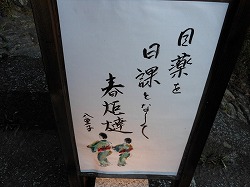 目薬を
日課となして
春炬燵
八重子